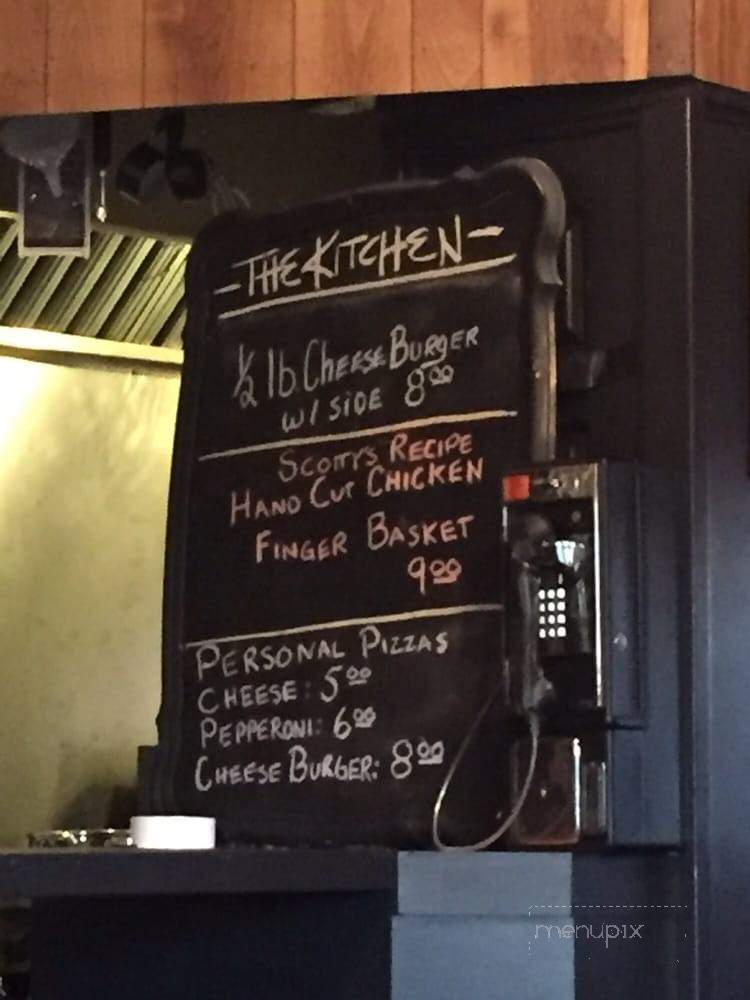 -THE KITCHEN-
1/2 lb. CHEESE BURGER
W/ SIDE 8.00
SCOTTY'S RECIPE
HAND CUT CHICKEN
FINGER BASKET
9.00
PERSONAL PIZZAS
CHEESE: 5.00
PEPPERONI: 6.00
CHEESE BURGER: 8.00
menupix